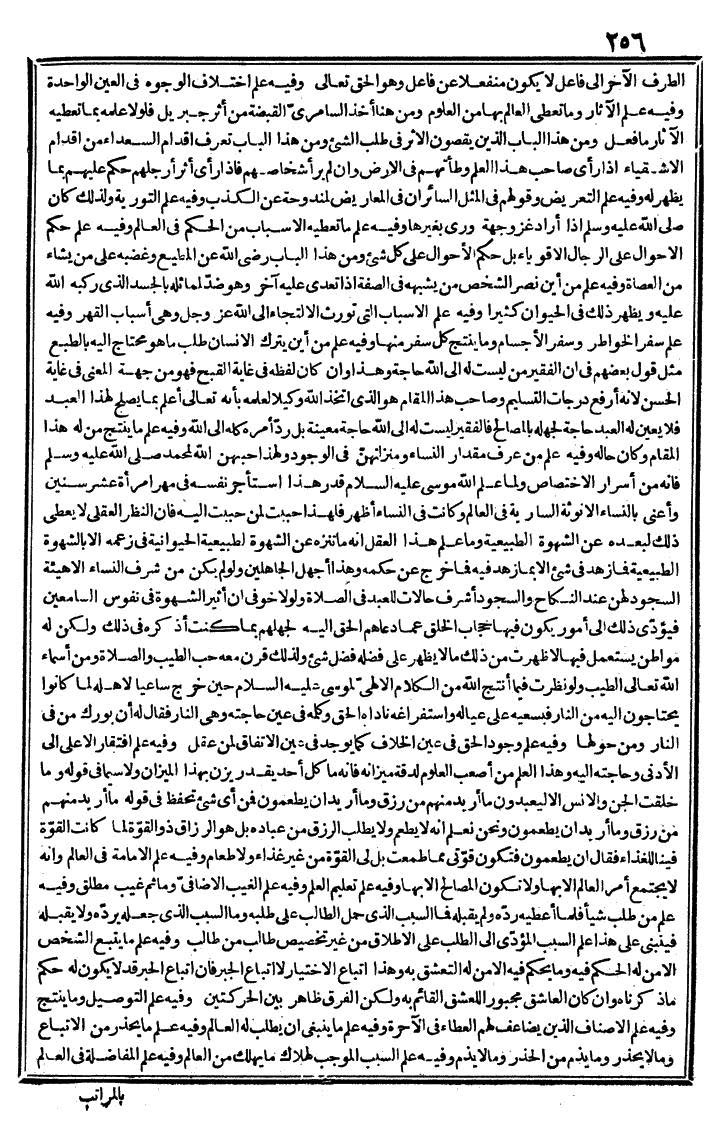 ٢٥٦
الطرف الآخر الى فاعل لا يكون منفعلا عن فاعل وهو الحق تعالى وفيه علم اختلاف الوجوه فى العين الواحدة
وفيه علم الآثار وما تعطى العالم بها من العلوم ومن هنا أخذ السامرى القبضة من أثر جبريل فلولا علمه بما تعطيه
الآثار ما فعل ومن هذا الباب الذين يقصون الاثر فى طلب الشئ ومن هذا الباب تعرف اقدام السعداء من اقدام
الاشقياء اذا رأى صاحب هذا العلم وطأتهم فى الارض وان لم ير أشخاصهم فاذا رأى أثر أرجلهم حكم عليهم بما
يظهر له وفيه علم التعريض وقولهم فى المثل السائر ان فى المعاريض لمندوحة عن الكذب وفيه علم التورية ولذلك كان
صلى الله عليه وسلم اذا أراد غزو جهة ورى بغيرها وفيه علم ما تعطيه الاسباب من الحكم فى العالم وفيه علم حكم
الاحوال على الرجال الاقوياء بل حكم الأحوال على كل شئ ومن هذا الباب رضى الله عن المطيع وغضبه على من يشاء
من العصاة وفيه علم من أين نصر الشخص من يشبهه فى الصفة اذا تعدى عليه آخر وهو ضد لما ثله بالجسد الذى ركبه الله
عليه ويظهر ذلك فى الحيوان كثيرا وفيه علم الاسباب التى تورث الالتجاء الى الله عز وجل وهى أسباب القهر وفيه
علم سفر الخواطر وسفر الأجسام وما ينتج كل سفر منها وفيه علم من أين يترك الانسان طلب ما هو محتاج اليه بالطبع
مثل قول بعضهم فى ان الفقير من ليست له الى الله حاجة وهذا وان كان لفظه فى غاية القبح فهو من جهة المعنى فى غاية
الحسن لانه أرفع درجات التسليم وصاحب هذا المقام هو الذى اتخذ الله وكيلا لعلمه بأنه تعالى أعلم بما يصلح لهذا العبد
فلا يعين له العبد حاجة لجهله بالمصالح فالفقير ليست له الى الله حاجة معينة بل رد أمره كله الى الله وفيه علم ما ينتج من له هذا
المقام وكان حاله وفيه علم من عرف مقدار النساء ومنزلتهن فى الوجود ولهذا حببهن الله لمحمد صلى الله عليه وسلم
فانه من أسرار الاختصاص ولما علم الله موسى عليه السلام قدر هذا استأجر نفسه فى مهر امرأة عشر سنين
وأعنى بالنساء الانوثة السارية فى العالم وكانت فى النساء أظهر فلهذا حببت لمن حببت اليه فان النظر العقلى لا يعطى
ذلك لبعده عن الشهوة الطبيعية وما علم هذا العقل انه ما تنزه عن الشهوة الطبيعية الحيوانية فى زعمه الا بالشهوة
الطبيعية فما زهد فى شئ الا بما زهد فيه فما خرج عن حكمه وهذا أجهل الجاهلين ولو لم يكن من شرف النساء الا هيئة
السجود لهن عند النكاح والسجود أشرف حالات للعبد فى الصلاة ولولا خوفى ان أثير الشهوة فى نفوس السامعين
فيؤدى ذلك الى أمور يكون فيها حجاب الخلق عما دعاهم الحق اليه لجهلهم بما كنت أذكره فى ذلك ولكن له
مواطن يستعمل فيها لا ظهرت من ذلك ما لا يظهر على فضله فضل شئ ولذلك قرن معه حب الطيب والصلاة ومن أسماء
الله تعالى الطيب ولو نظرت فيما أنتج الله من الكلام الالهى لموسى عليه السلام حين خرج ساعيا لاهله لما كانوا
يحتاجون اليه من النار فبسعيه على عياله واستفراغه ناداه الحق وكلمه فى عين حاجته وهى النار فقال له أن بورك من فى
النار ومن حولها وفيه علم وجود الحق فى عين الخلاف كما يوجد فى عين الاتفاق لمن عقل وفيه علم افتقار الاعلى الى
الأدنى وحاجته اليه وهذا العلم من أصعب العلوم لدقة ميزانه فانه ما كل أحد يقدر يزن بهذا الميزان ولا سيما فى قوله وما
خلقت الجن والانس الا ليعبدون ما أريد منهم من رزق وما أريد ان يطعمون فمن أى شئ تحفظ فى قوله ما أريد منهم
من رزق وما أريد ان يطعمون ونحن نعلم انه لا يطعم ولا يطلب الرزق من عباده بل هو الرزاق ذو القوة لما كانت القوة
فينا للغذاء فقال ان يطعمون فتكون قوتى مما طعمت بل لى القوة من غير غذاء ولا طعام وفيه علم الامامة فى العالم وانه
لا يجتمع أمر العالم الا بها ولا تكون المصالح الا بها وفيه علم تعليم العلم وفيه علم الغيب الاضافى وما ثم غيب مطلق وفيه
علم من طلب شيأ فلما أعطيه رده ولم يقبله فما السبب الذى حمل الطالب على طلبه وما السبب الذى جعله يرده ولا يقبله
فينبنى على هذا علم السبب المؤدى الى الطلب على الاطلاق من غير تخصيص طالب من طالب وفيه علم ما يتبع الشخص
الا من له الحكم فيه وما يحكم فيه الا من له التعشق به وهذا اتباع الاختيار لا اتباع الجبر فان اتباع الجبر قد لا يكون له حكم
ما ذكرناه وان كان العاشق مجبور للعشق القائم به ولكن الفرق ظاهر بين الحركتين وفيه علم التوصيل وما ينتج
وفيه علم الاصناف الذين يضاعف لهم العطاء فى الآخرة وفيه علم ما ينبغى ان يطلب له العالم وفيه علم ما يحذر من الاتباع
وما لا يحذر وما يذم من الحذر وما لا يذم وفيه علم السبب الموجب لهلاك ما يهلك من العالم وفيه علم المفاضلة فى العالم
بالمراتب